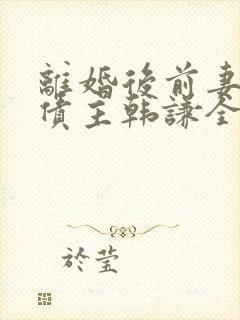 離婚後前妻
債主韩謙全
於莹